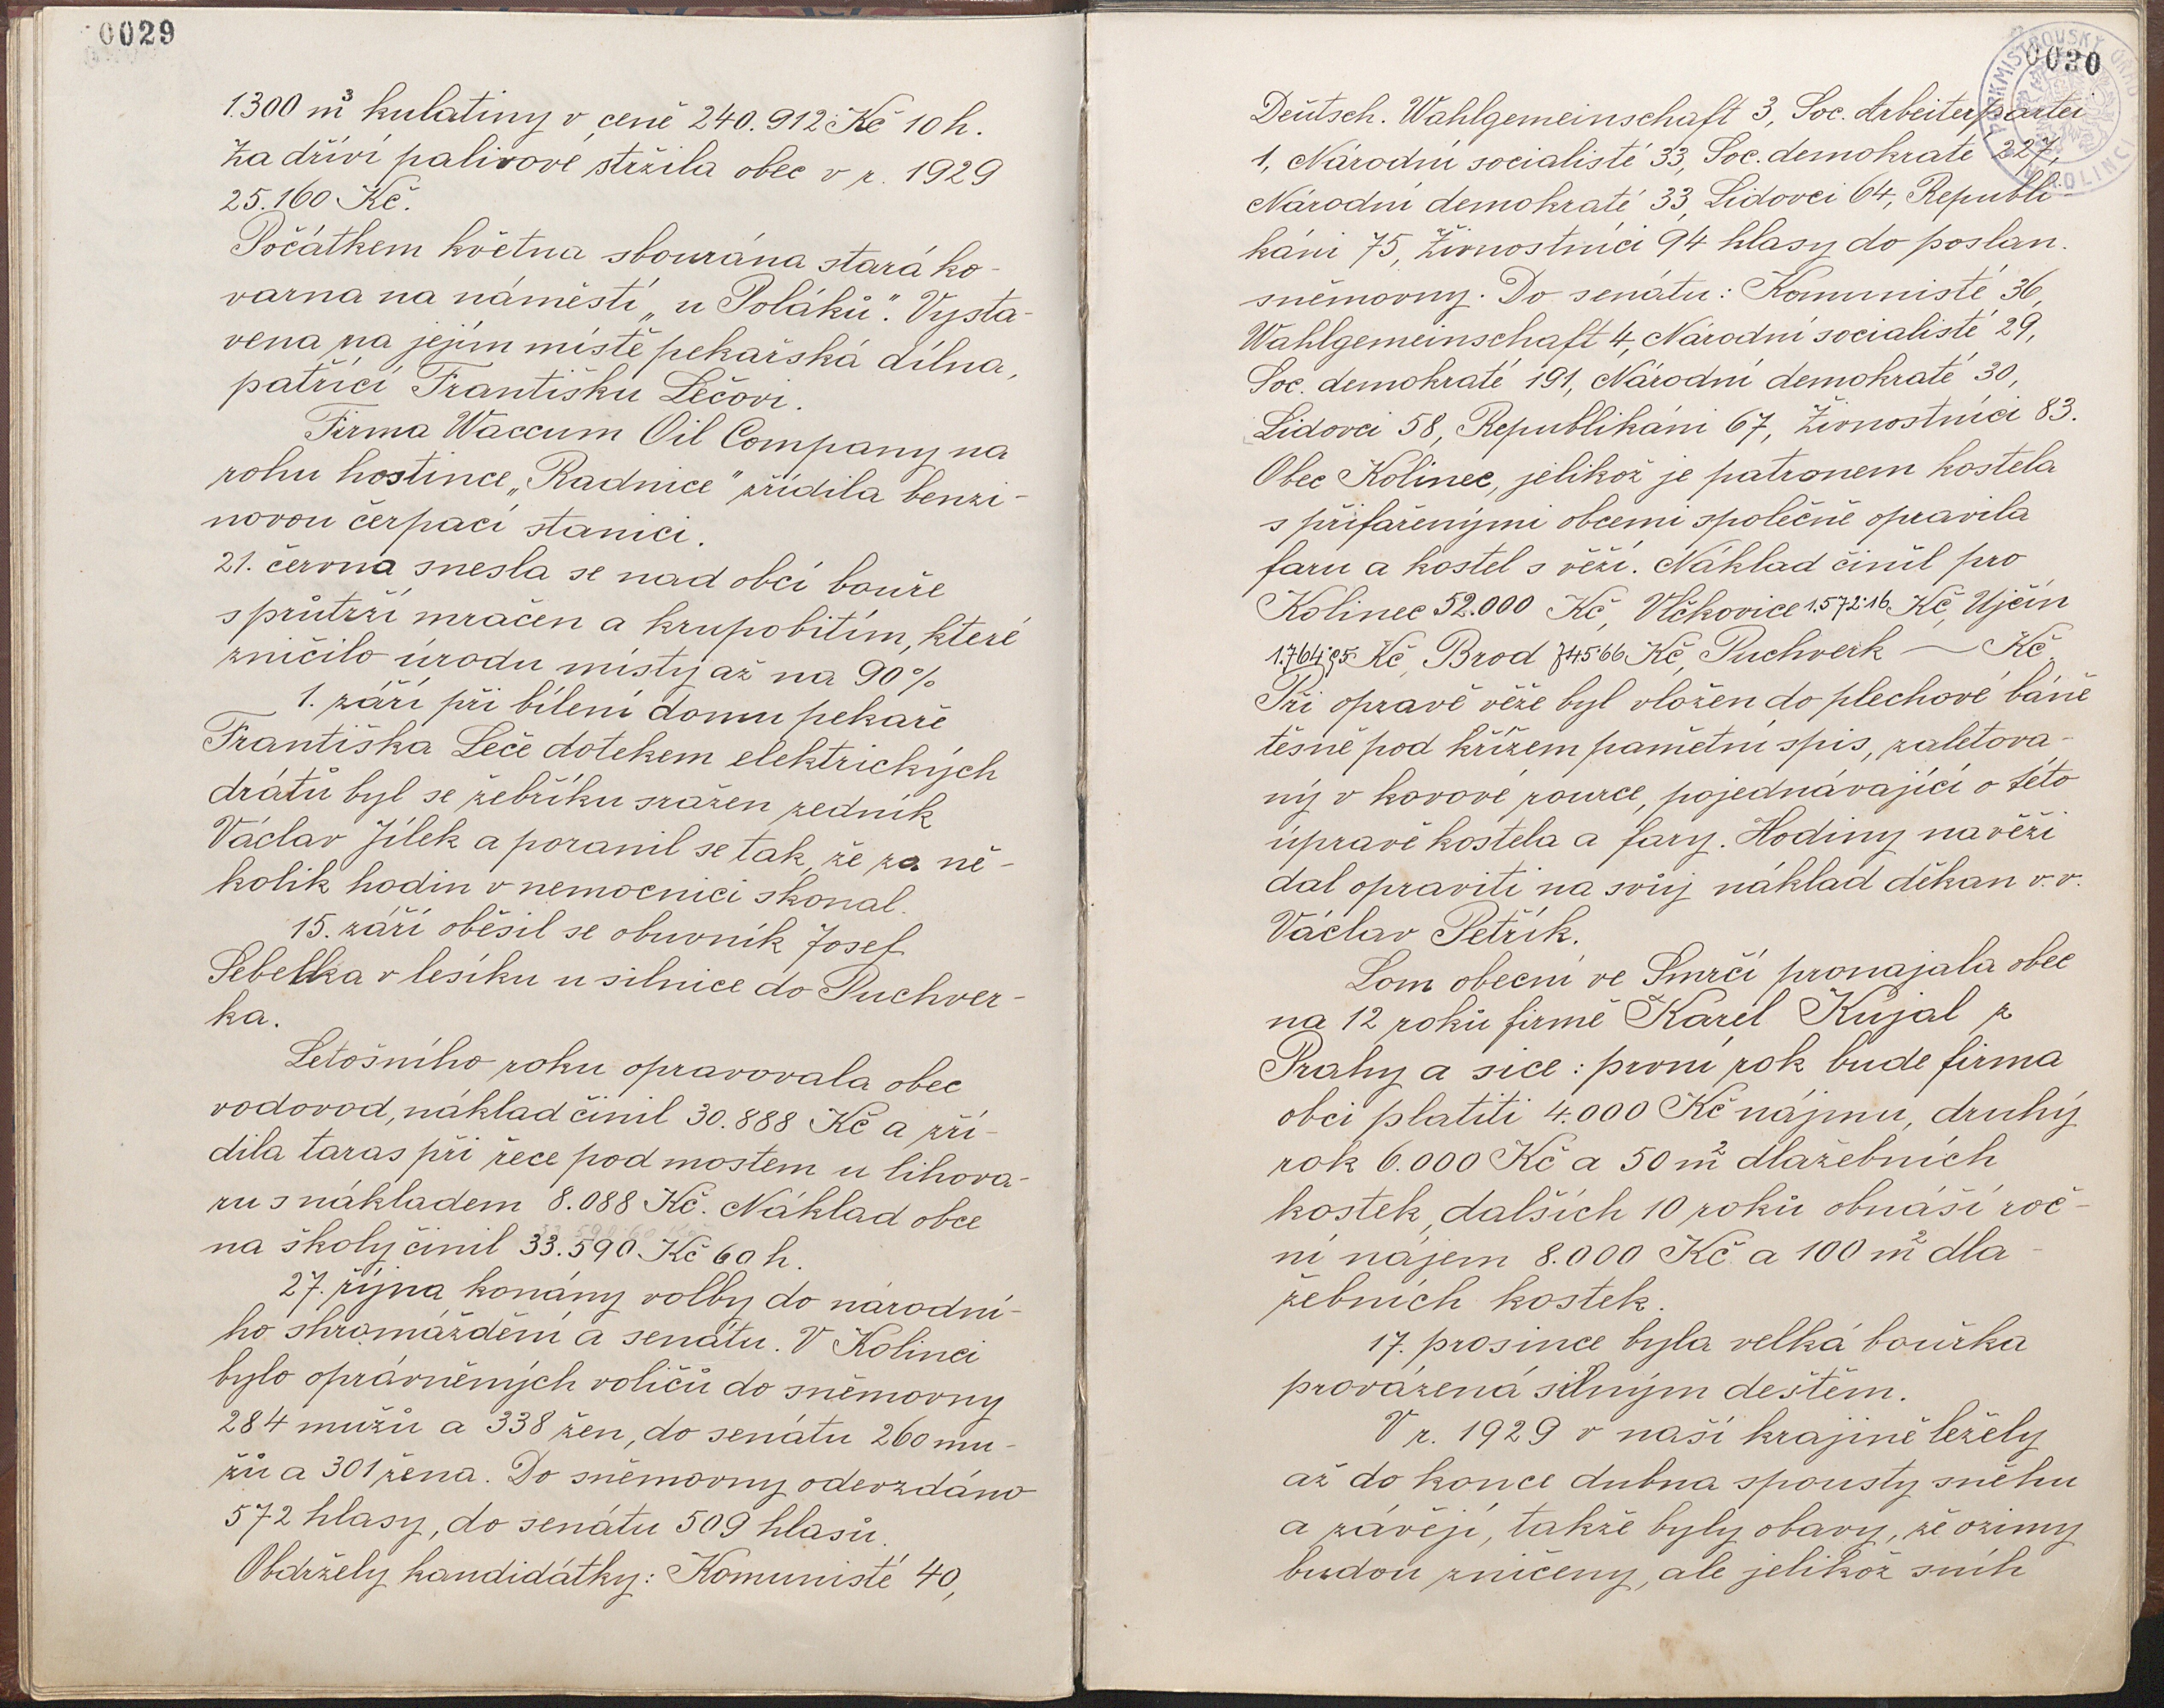 0029
1.300 m³ kulatiny v ceně 240.912 Kč 10 h.
Za dříví palivové stržila obec v r. 1929
25.160 Kč.
Počátkem května sbourána stará ko-
varna na náměstí „u Poláků". Vysta-
vena na jejím místě pekařská dílna,
patřící Františku Lečovi.
Firma Waccum Oil Company na
rohu hostince „Radnice" zřídila benzi-
novou čerpací stanici.
21. června snesla se nad obcí bouře
s průtrží mračen a krupobitím, které
zničilo úrodu místy až na 90%
1. září při bílení domu pekaře
Františka Leče dotekem elektrických
drátů byl se žebříku sražen zedník
Václav Jílek a poranil se tak, že za ně-
kolik hodin v nemocnici skonal.
15. září oběsil se obuvník Josef
Sebelka v lesíku u silnice do Puchver-
ka.
Letošního roku opravovala obec
vodovod, náklad činil 30.888 Kč a zří-
dila taras při řece pod mostem u lihova-
ru s nákladem 8.088 Kč. Náklad obce
na školy činil 33.590 Kč 60 h.
27. října konány volby do národní-
ho shromáždění a senátu. V Kolinci
bylo oprávněných voličů do sněmovny
284 mužů a 338 žen, do senátu 260 mu-
žů a 301 žena. Do sněmovny odevzdáno
572 hlasy, do senátu 509 hlasů.
Obdržely kandidátky: Komunisté 40,
0030
Deutsch. Wahlgemeinschaft 3, Soc. Arbeiterpartei
1, Národní socialisté 33, Soc. demokraté 227,
Národní demokraté 33, Lidovci 64, Republi-
káni 75, Živnostníci 94 hlasy do poslan.
sněmovny. Do senátu: Komunisté 36,
Wahlgemeinschaft 4, Národní socialisté 29,
Soc. demokraté 191, Národní demokraté 30,
Lidovci 58, Republikáni 67, Živnostníci 83.
Obec Kolinec, jelikož je patronem kostela
s přifařenými obcemi společně opravila
faru a kostel s věží. Náklad činil pro
Kolinec 52.000 Kč, Vlčkovice 1.572.16 Kč, Ujčín
Kč, Brod Kč, Puchverk — Kč,
Při opravě věže byl vložen do plechové báně
těsně pod křížem pamětní spis, zaletova-
ný v kovové rource, pojednávající o této
úpravě kostela a fary. Hodiny na věži
dal opraviti na svůj náklad děkan v.v.
Václav Petřík.
Lom obecní ve Smrčí pronajala obec
na 12 roků firmě Karel Kujal z
Prahy a sice: první rok bude firma
obci platiti 4.000 Kč nájmu, druhý
rok 6.000 Kč a 50 m² dlažebních
kostek, dalších 10 roků obnáší roč-
ní nájem 8.000 Kč a 100 m² dla-
žebních kostek.
17. prosince byla velká bouřka
provázená silným deštěm.
V r. 1929 v naší krajině ležely
až do konce dubna spousty sněhu
a závějí, takže byly obavy, že ozimy
budou zničeny, ale jelikož sníh